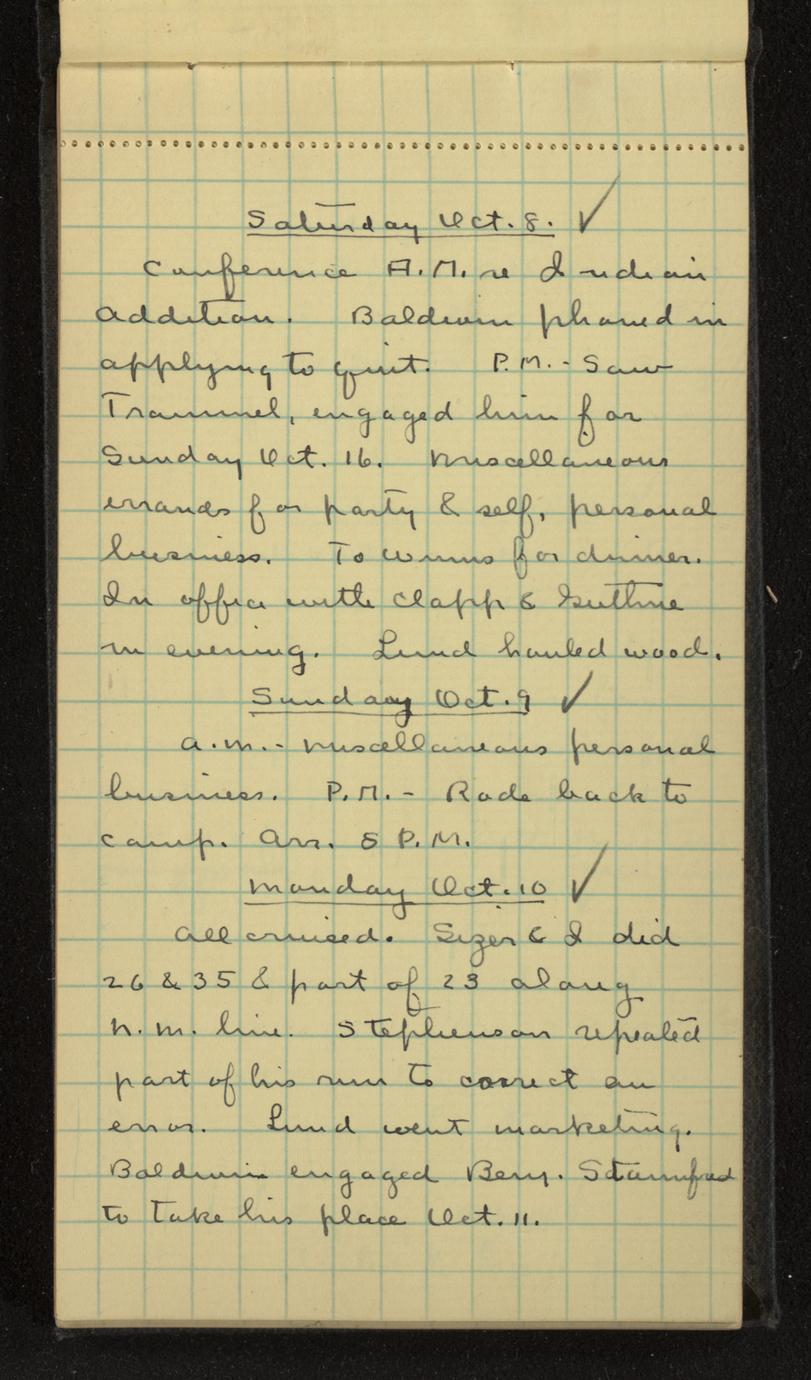 Saturday Oct. 8. ✓
Conference A.M. re Indian
addition. Baldwin phoned in
applying to quit. P.M. - Saw
Trammel, engaged him for
Sunday Oct. 16. Miscellaneous
errands for party & self, personal
business. To Winns for dinner.
In office with Clapp & Guthrie
in evening. Lund hauled wood.
Sunday Oct. 9 ✓
a.m. - Miscellaneous personal
business. P.M. - Rode back to
camp. Arr. 8 P.M.
Monday Oct. 10 ✓
All cruised. Sizer & I did
26 & 35 & part of 23 along
N.M. line. Stephenson repeated
part of his run to correct an
error. Lund went marketing.
Baldwin engaged Benj.
to take his place Oct. 11.